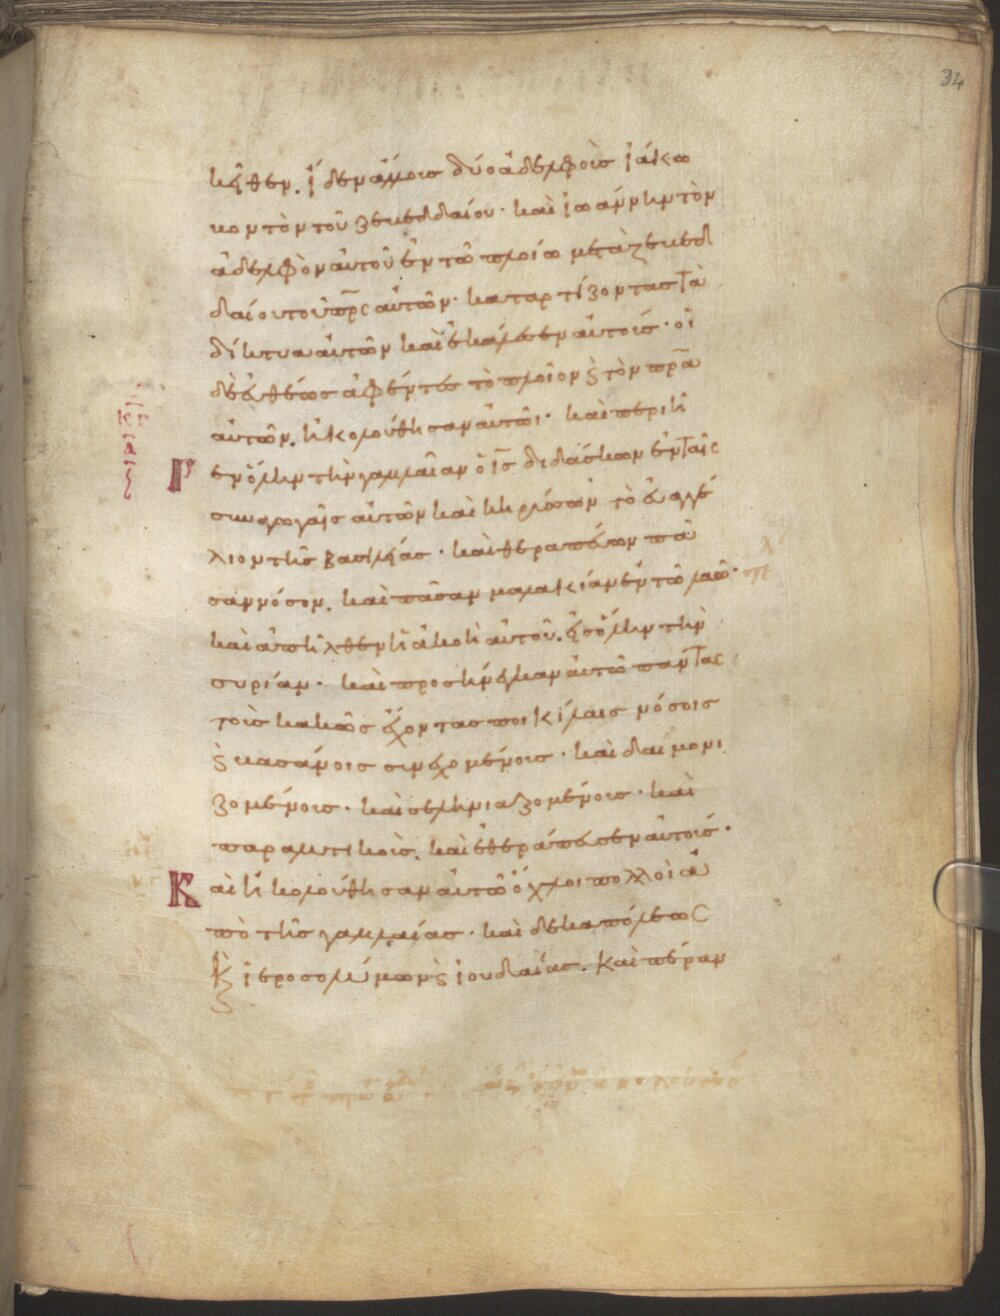 34
κεῖθεν. ἴδεν ἄλλους δύο ἀδελφοὺς ἰάκω
βον τὸν τοῦ ζεβεδδαίου· καὶ ἰωάννην τὸν
ἀδελφὸν αὐτοῦ ἐν τῶ πλοίω μετὰ ζεβεδ
δαίου τοῦ πρς αὐτῶν· καταρτίζοντας τὰ
δίκτυα αὐτῶν καὶ ἐκάλεσεν αὐτούς· οἱ
δὲ εὐθέως ἀφέντες τὸ πλοῖον ϗ τὸν πρα
αὐτῶν. ἠκολούθησαν αὐτῶι· καὶ περιῆ
Γ
εν ὅλην τὴν γαλιλαῖαν ὁ ις διδάσκων ἐν ταῖς
συναγωγαῖς αὐτῶν καὶ κηρύσσων τὸ εὐαγγέ
λιον τῆς βασιλείας· καὶ θεραπεύων πᾶ
σαν νόσον. καὶ πᾶσαν μαλακίαν ἐν τῶ λαῶ·
καὶ ἀπῆλθεν ἡ ἀκοὴ αὐτοῦ. εἰς ὅλην τὴν
συρίαν· καὶ προσήνεγκαν αὐτῶ πάντας
τοὺς κακῶς ἔχοντας ποικίλαις νόσοις
ϗ βασάνοις συνεχομένους· καὶ δαιμονι
ζομένους· καὶ σεληνιαζομένους· καὶ
παραλυτικοὺς. καὶ ἐθεράπευσεν αὐτούς·
Καὶ ἠκολούθησαν αὐτῶ ὄχλοι πολλοὶ ἀ
πὸ τῆς γαλιλαίας· καὶ δεκαπόλεως
ϗ ἱεροσολύμων ϗ ἰουδαίας. καὶ πέραν